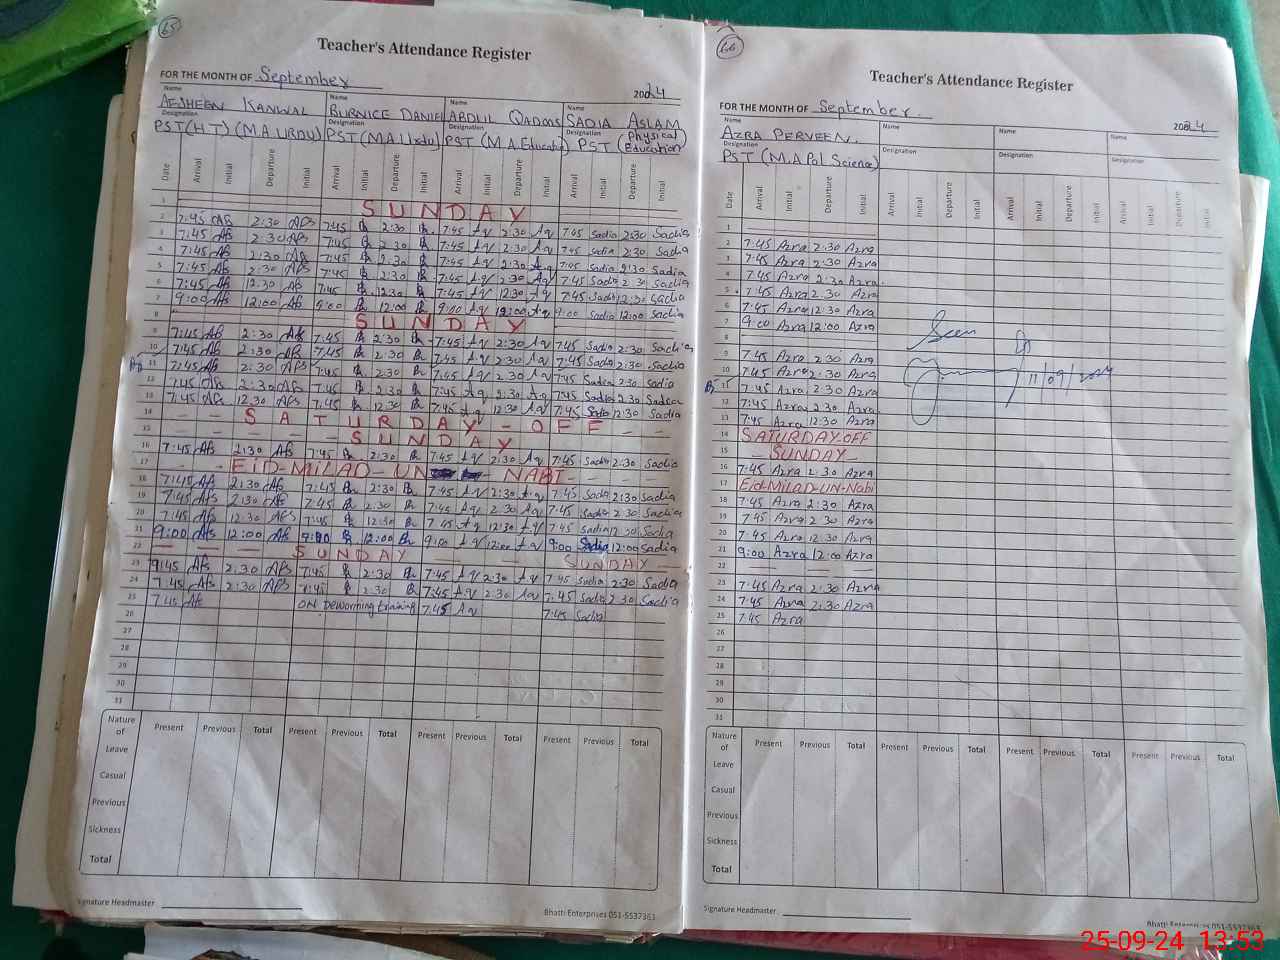 65
Teacher's Attendance Register
FOR THE MONTH OF September 2024
Name Name Name Name
AFSHEEN KANWAL BURNICE DANIEL ABDUL QADOOS SADIA ASLAM
Designation Designation Designation Designation
PST (H.T) (M.A URDU) PST (M.A Urdu) PST (M.A Education) PST (Physical Education)
Date Arrival Initial Departure Initial Arrival Initial Departure Initial Arrival Initial Departure Initial Arrival Initial Departure Initial
1 SUNDAY
2 7:45 Afs 2:30 Afs 7:45 2:30 7:45 A.q 2:30 A.q 7:45 Sadia 2:30 Sadia
3 7:45 Afs 2:30 Afs 7:45 2:30 7:45 A.q 2:30 A.q 7:45 Sadia 2:30 Sadia
4 7:45 Afs 2:30 Afs 7:45 2:30 7:45 A.q 2:30 A.q 7:45 Sadia 2:30 Sadia
5 7:45 Afs 2:30 Afs 7:45 2:30 7:45 A.q 2:30 A.q 7:45 Sadia 2:30 Sadia
6 7:45 Afs 12:30 Afs 7:45 12:30 7:45 A.q 12:30 A.q 7:45 Sadia 12:30 Sadia
7 9:00 Afs 12:00 Afs 9:00 12:00 9:00 A.q 12:00 A.q 9:00 Sadia 12:00 Sadia
8 SUNDAY
9 7:45 Afs 2:30 Afs 7:45 2:30 7:45 A.q 2:30 A.q 7:45 Sadia 2:30 Sadia
10 7:45 Afs 2:30 Afs 7:45 2:30 7:45 A.q 2:30 A.q 7:45 Sadia 2:30 Sadia
11 7:45 Afs 2:30 Afs 7:45 2:30 7:45 A.q 2:30 A.q 7:45 Sadia 2:30 Sadia
12 7:45 Afs 2:30 Afs 7:45 2:30 7:45 A.q 2:30 A.q 7:45 Sadia 2:30 Sadia
13 7:45 Afs 12:30 Afs 7:45 12:30 7:45 A.q 12:30 A.q 7:45 Sadia 12:30 Sadia
14 SATURDAY-OFF
15 SUNDAY
16 7:45 Afs 2:30 Afs 7:45 2:30 7:45 A.q 2:30 A.q 7:45 Sadia 2:30 Sadia
17 EID-MILAD-UN NABI
18 7:45 Afs 2:30 Afs 7:45 2:30 7:45 A.q 2:30 A.q 7:45 Sadia 2:30 Sadia
19 7:45 Afs 2:30 Afs 7:45 2:30 7:45 A.q 2:30 A.q 7:45 Sadia 2:30 Sadia
20 7:45 Afs 12:30 Afs 7:45 12:30 7:45 A.q 12:30 A.q 7:45 Sadia 12:30 Sadia
21 9:00 Afs 12:00 Afs 9:00 12:00 9:00 A.q 12:00 A.q 9:00 Sadia 12:00 Sadia
22 SUNDAY SUNDAY
23 9:45 Afs 2:30 Afs 7:45 2:30 7:45 A.q 2:30 A.q 7:45 Sadia 2:30 Sadia
24 7:45 Afs 2:30 Afs 7:45 2:30 7:45 A.q 2:30 A.q 7:45 Sadia 2:30 Sadia
25 7:45 Afs ON Deworming training 7:45 A.q 7:45 Sadia
26
27
28
29
30
31
Nature of Leave Present Previous Total Present Previous Total Present Previous Total Present Previous Total
Casual
Previous
Sickness
Total
Signature Headmaster
Bhatti Enterprises 051-5537363
66
Teacher's Attendance Register
FOR THE MONTH OF September. 2024
Name Name Name Name
AZRA PERVEEN.
Designation Designation Designation Designation
PST (M.A Pol Science)
Date Arrival Initial Departure Initial Arrival Initial Departure Initial Arrival Initial Departure Initial Arrival Initial Departure Initial
1
2 7:45 Azra 2:30 Azra
3 7:45 Azra 2:30 Azra
4 7:45 Azra 2:30 Azra
5 7:45 Azra 2:30 Azra
6 7:45 Azra 12:30 Azra
7 9:00 Azra 12:00 Azra
Seen
8
9 7:45 Azra 2:30 Azra
10 7:45 Azra 2:30 Azra
11/09/2024
11 7:45 Azra 2:30 Azra
12 7:45 Azra 2:30 Azra
13 7:45 Azra 12:30 Azra
14 SATURDAY OFF
15 SUNDAY
16 7:45 Azra 2:30 Azra
17 Eid-MILAD-UN-Nabi
18 7:45 Azra 2:30 Azra
19 7:45 Azra 2:30 Azra
20 7:45 Azra 12:30 Azra
21 9:00 Azra 12:00 Azra
22
23 7:45 Azra 2:30 Azra
24 7:45 Azra 2:30 Azra
25 7:45 Azra
26
27
28
29
30
31
Nature of Leave Present Previous Total Present Previous Total Present Previous Total Present Previous Total
Casual
Previous
Sickness
Total
Signature Headmaster
Bhatti Enterprises 051-5537363
25-09-24 13:53